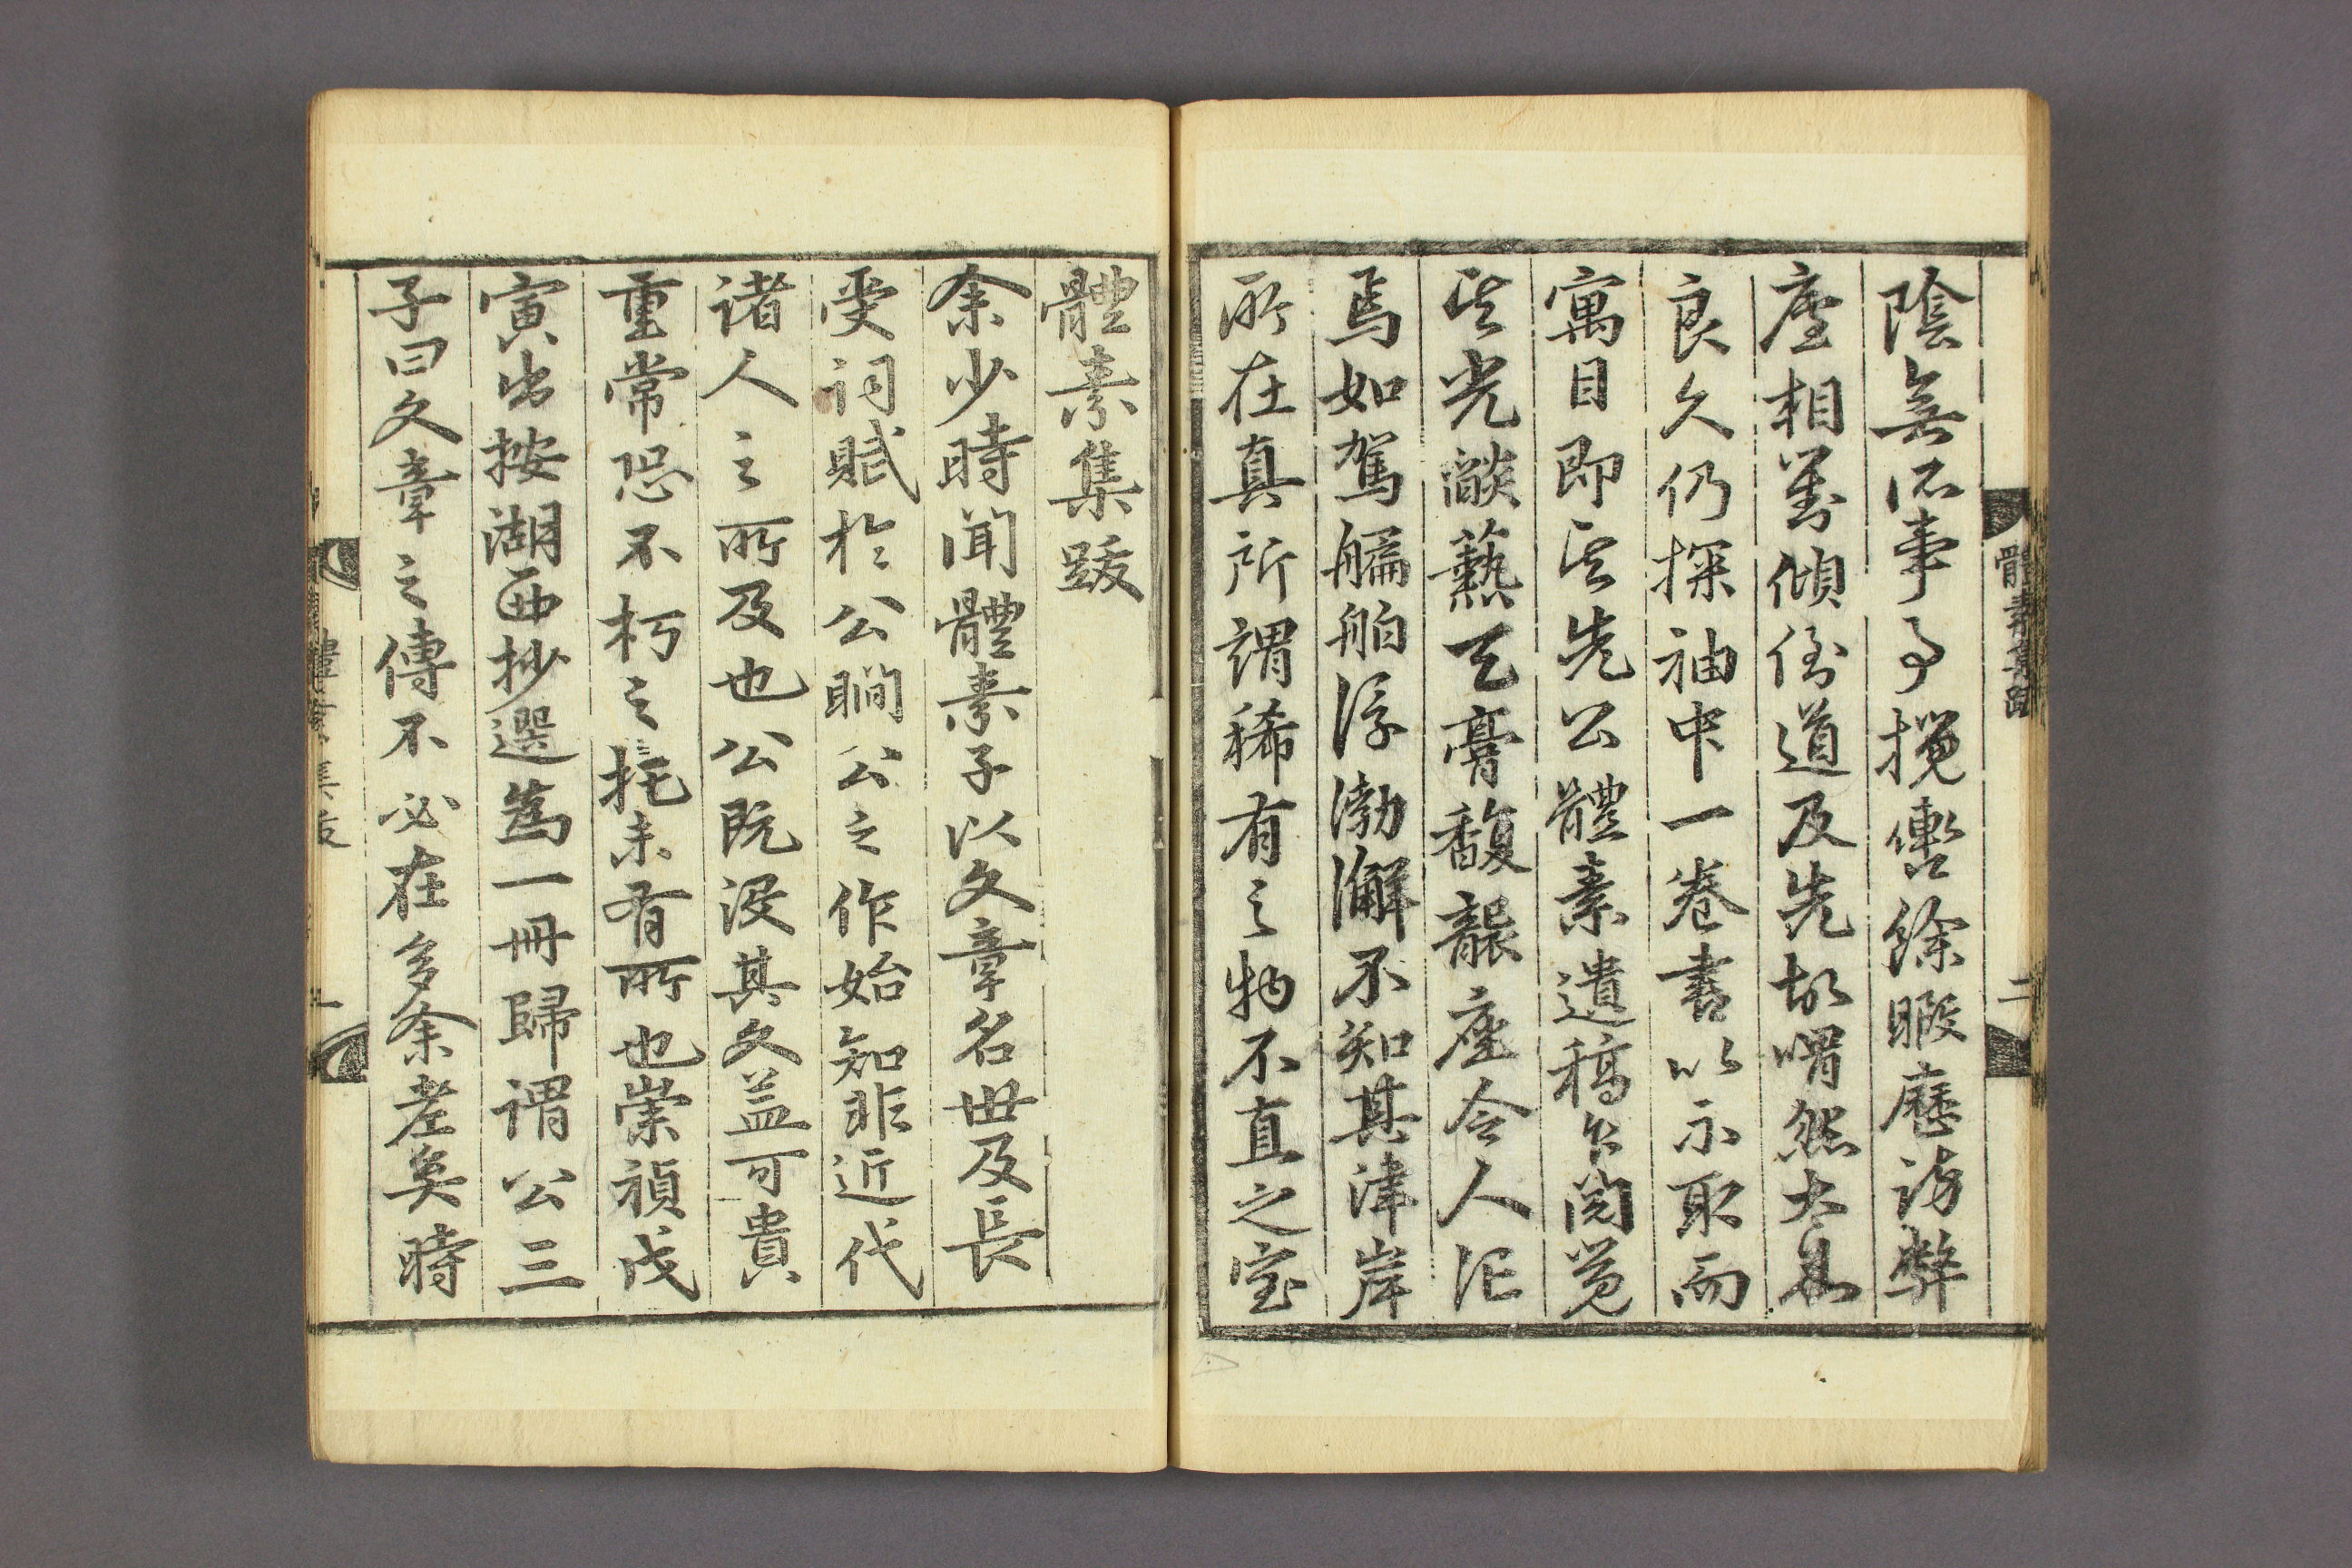 陰無何事予攬轡餘暇歷訪弊
座相對傾倒道及先故喟然太息
良久仍探袖中一卷書以示取而
寓目即其先公體素遺稿公閱覓
其光燄爇天膏馥襲座令人茫
焉如駕艑舶浮渤澥不知其津岸
所在真所謂稀有之物不直之宝
體素集跋
余少時聞體素子以文章名世及長
受詞賦於公瞷公之作始知非近代
諸人之所及也公既沒其文益可貴
重常恐不朽之托未有所也崇禎戊
寅出按湖西抄選為一冊歸謂公三
子曰文章之傳不必在多余老矣時
體素集跋
二
體素集跋
一